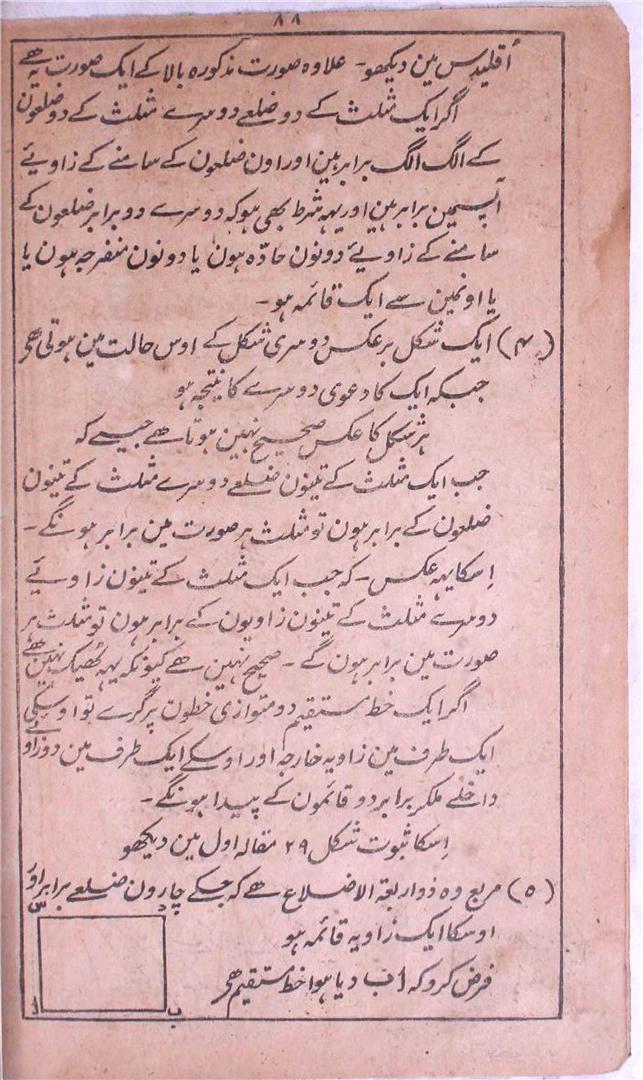 ۸۸
اُقلیدس مین دیکھو۔ علاوہ صورت مذکورہ بالا کے ایک صورت یہ ھے
اگر ایک مثلث کے دو ضلعے دوسرے مثلث کے دو ضلعون
کے الگ الگ برابر ہین اور اون ضلعون کے سامنے کے زاویئے
آپسمین برابر ہین اور یہہ شرط بھی ہو کہ دوسرے دو برابر ضلعون کے
سامنے کے زاویئے دونون حادّہ ہون یا دونون منفرجہ ہون یا
یا اونمین سے ایک قائمہ ہو۔
(۴) ایک شکل برعکس دوسری شکل کے اوس حالت مین ہوتی ھی
جبکہ ایک کا دعوی دوسرے کا نتیجہ ہو
ہر شکل کا عکس صحیح نہین ہوتا ھے جیسے کہ
جب ایک مثلث کے تینون ضلعے دوسرے مثلث کے تینون
ضلعون کے برابر ہون تو مثلث ہر صورت مین برابر ہونگے۔
اِسکا یہہ عکس۔ کہ جب ایک مثلث کے تینون زاویئے
دوسرے مثلث کے تینون زاویون کے برابر ہون تو مثلث ہر
صورت مین برابر ہون گے۔ صحیح نہین ھے کیونکہ یہہ ٹھیک نہین ھے
اگر ایک خط مستقیم دو متوازی خطون پر گرے تو اوسکی
ایک طرف مین زاویہ خارجہ اور اوسکے ایک طرف مین دو زاویے
داخلے ملکر برابر دو قائمون کے پیدا ہونگے۔
اِسکا ثبوت شکل ۲۹ مقالہ اول مین دیکھو
(۵) مربع وہ ذو اربعۃ الاضلاع ھے کہ جسکے چارون ضلعے برابر اور
اوسکا ایک زاویہ قائمہ ہو
فرض کرو کہ اب دیا ہوا خط مستقیم ھی
ا ب